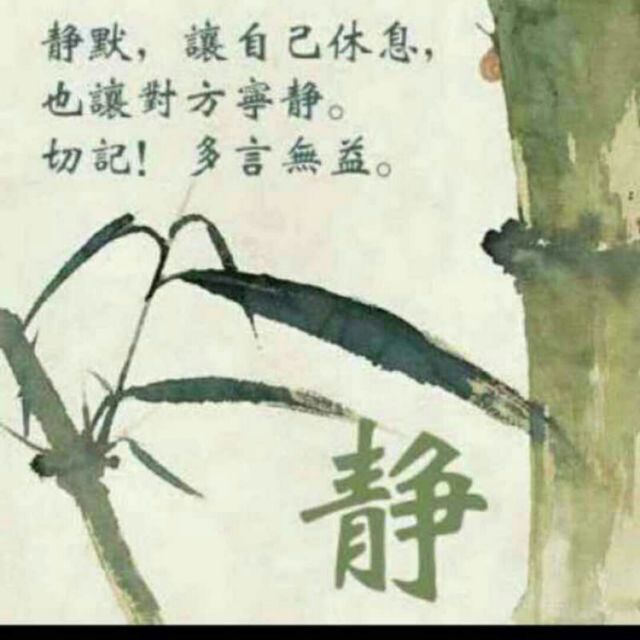 静默，讓自己休息，
也讓對方寧静。
切記！多言無益。
静